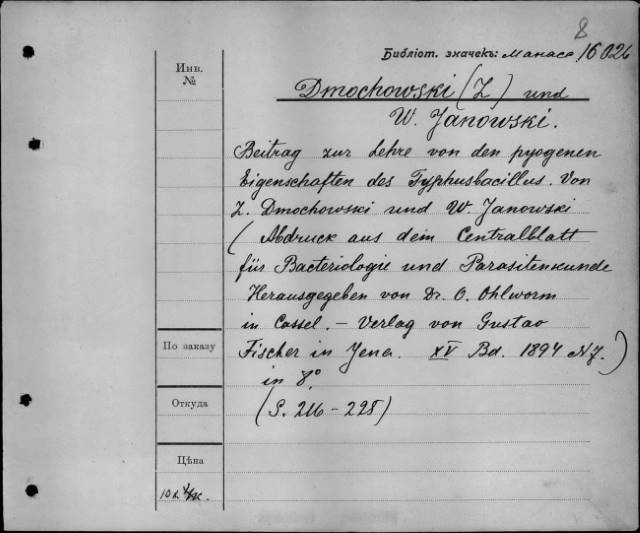 8
Библіот. значекъ: Манасе 16026
Инв.
№
Dmochowski (Z.) und
W. Janowski.
Beitrag zur Lehre von den pyogenen
Eigenschaften des Typhusbacillus. Von
Z. Dmochowski und W. Janowski
(Abdruck aus dem Centralblatt
für Bacteriologie und Parasitenkunde
Herausgegeben von Dr. O. Ohlworm
in Cassel. – Verlag von Gustav
По заказу
Fischer in Jena. XV Bd. 1894 № 7.)
in 8°.
Откуда
(S. 216 – 228)
Цѣна